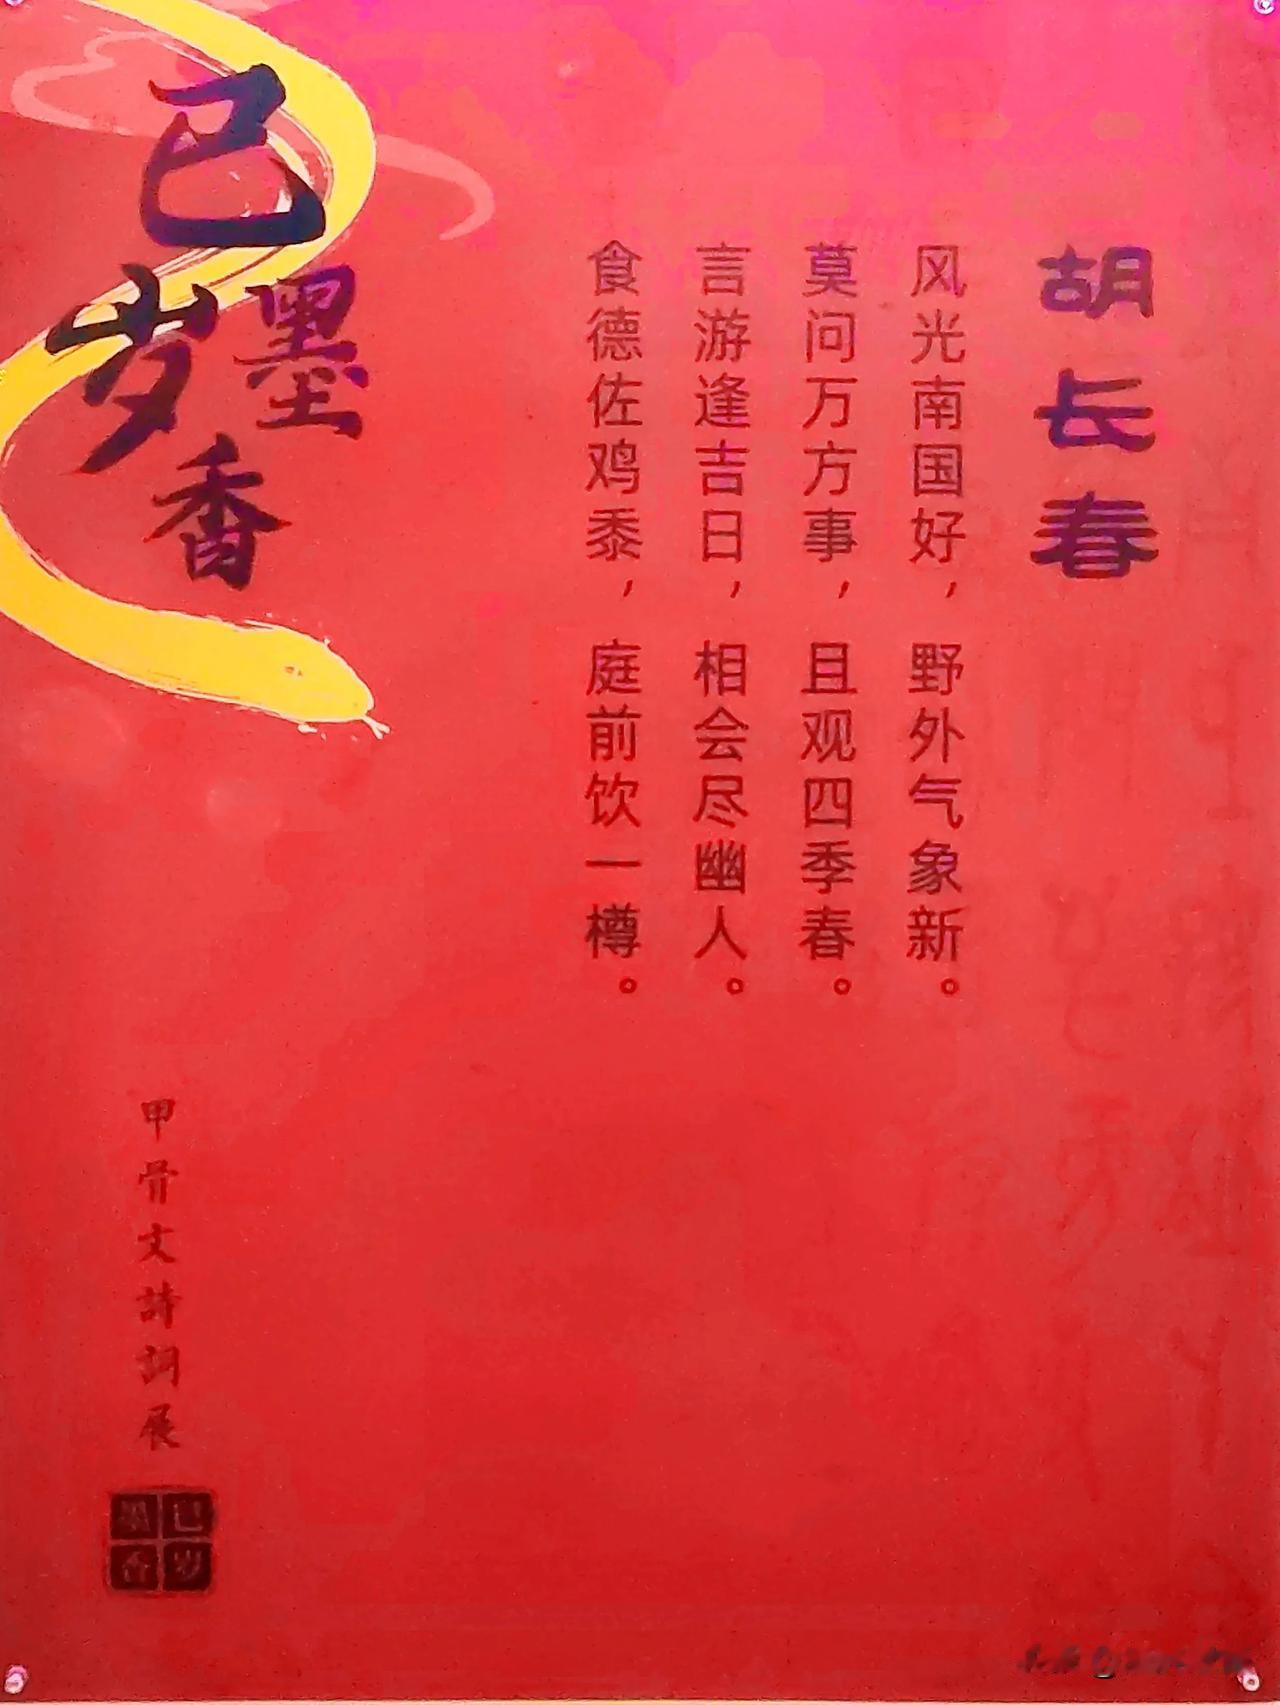 胡长春
风光南国好，野外气象新。
莫问万方事，且观四季春。
言游逢吉日，相会尽幽人。
食德佐鸡黍，庭前饮一樽。
巳岁墨香
甲骨文詩詞展
巳岁墨香